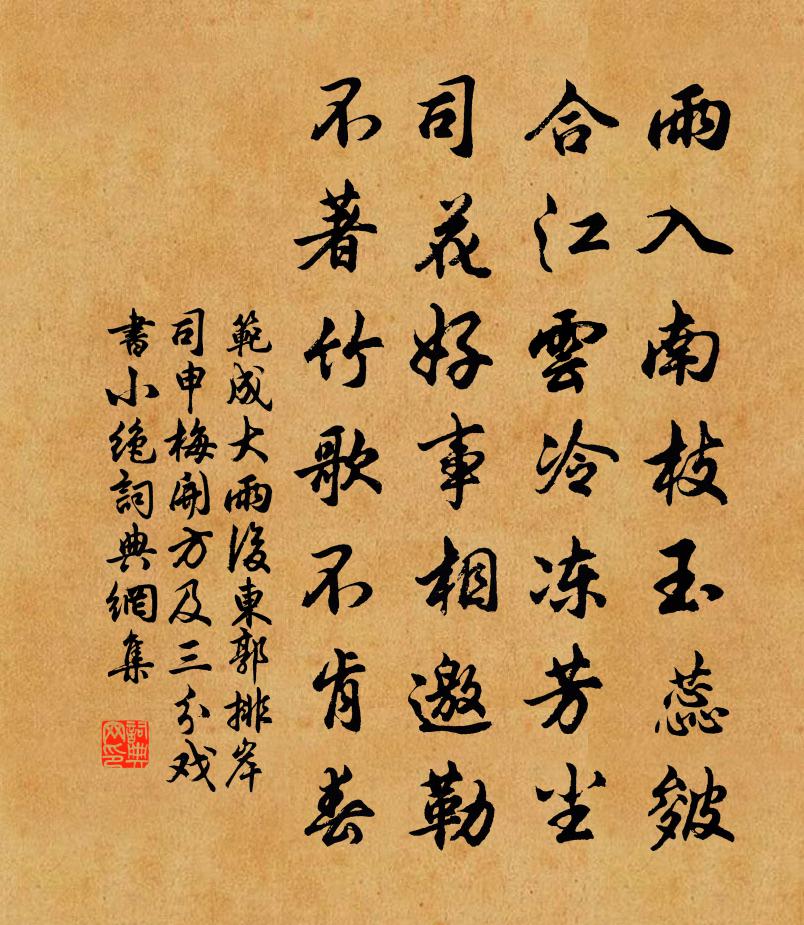 雨入南枝玉蕊皴
合江雲冷冻芳尘
司花好事相邀勒
不著竹歌不肯春
範成大雨後東郭排岸
司申梅開方及三分戏
書小绝詞典網集
詞典網印